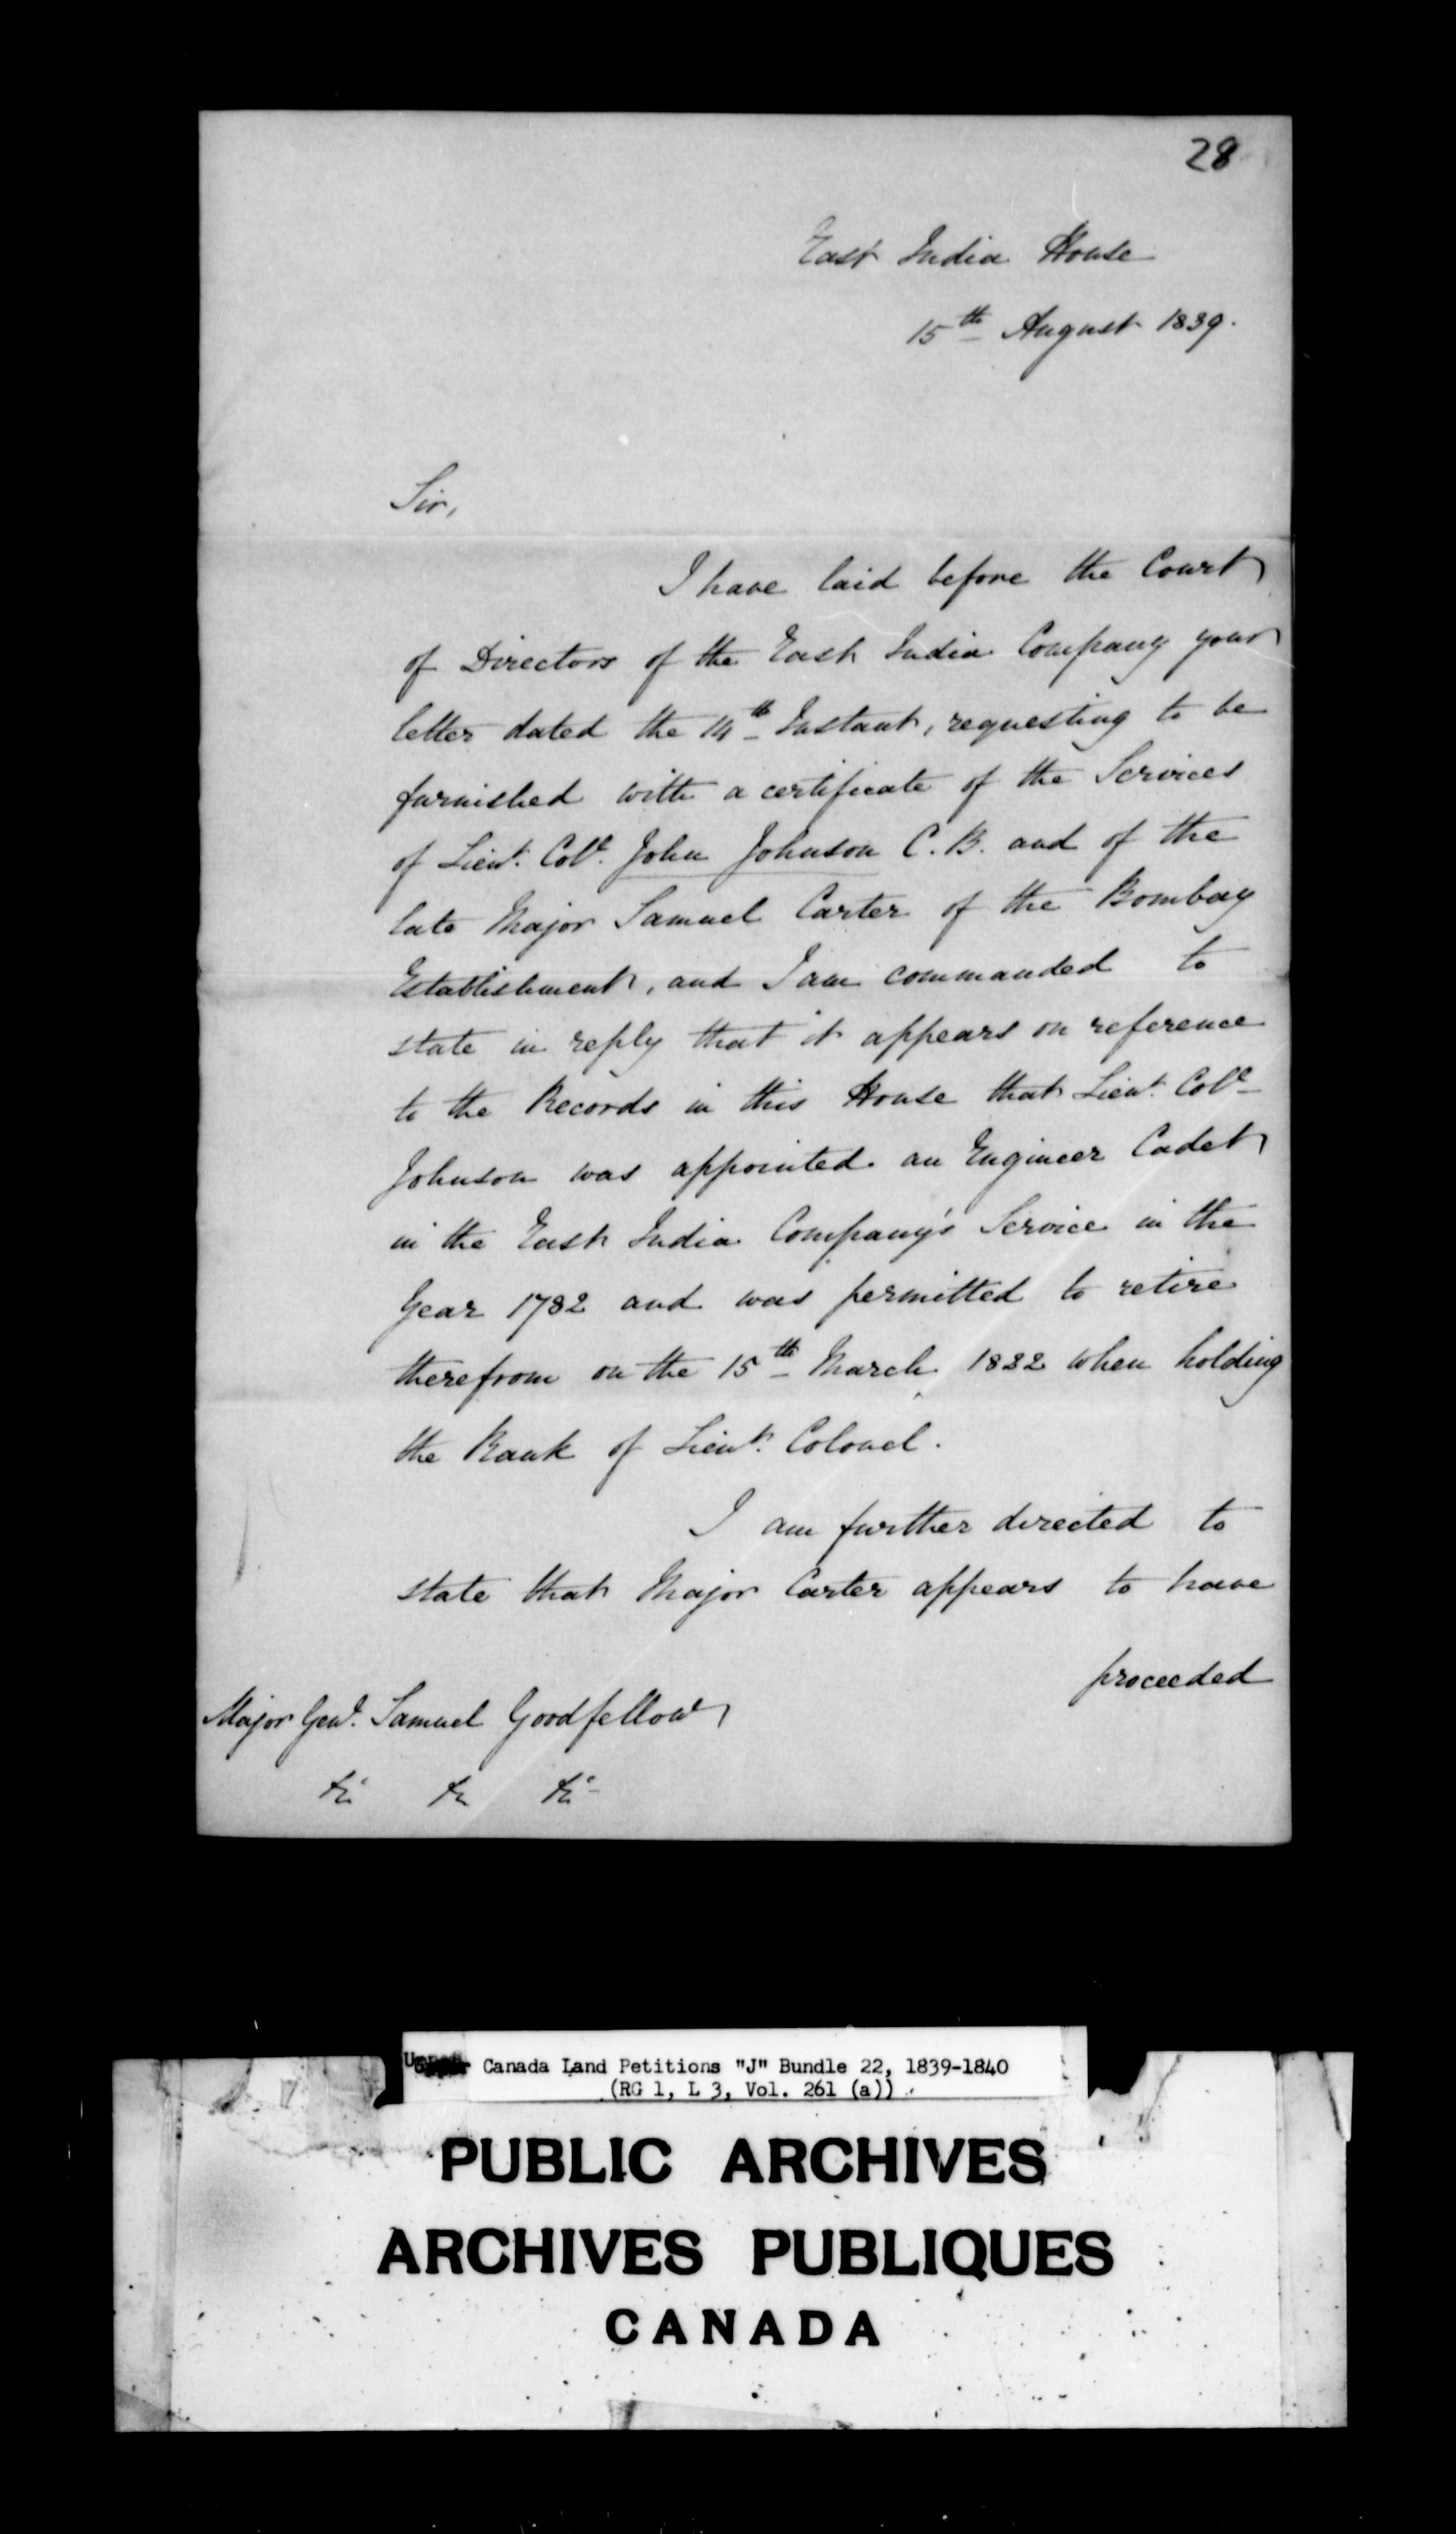 28
East India House
15th August 1839.
Sir,
I have laid before the Court
of Directors of the East India Company your
letter dated the 14th Instant, requesting to be
furnished with a certificate of the Services
of Lieut. Coll. John Johnson C.B. and of the
late Major Samuel Carter of the Bombay
Establishment, and I am commanded to
state in reply that it appears on reference
to the Records in this House that Lieut. Coll.
Johnson was appointed an Engineer Cadet
in the East India Company's Service in the
Year 1782 and was permitted to retire
therefrom on the 15th March 1822 when holding
the Rank of Lieut. Colonel.
I am further directed to
state that Major Carter appears to have
proceeded
Major Genl. Samuel Goodfellow
&c &c &c
Upper Canada Land Petitions "J" Bundle 22, 1839-1840
(RG 1, L 3, Vol. 261 (a))
PUBLIC ARCHIVES
ARCHIVES PUBLIQUES
CANADA